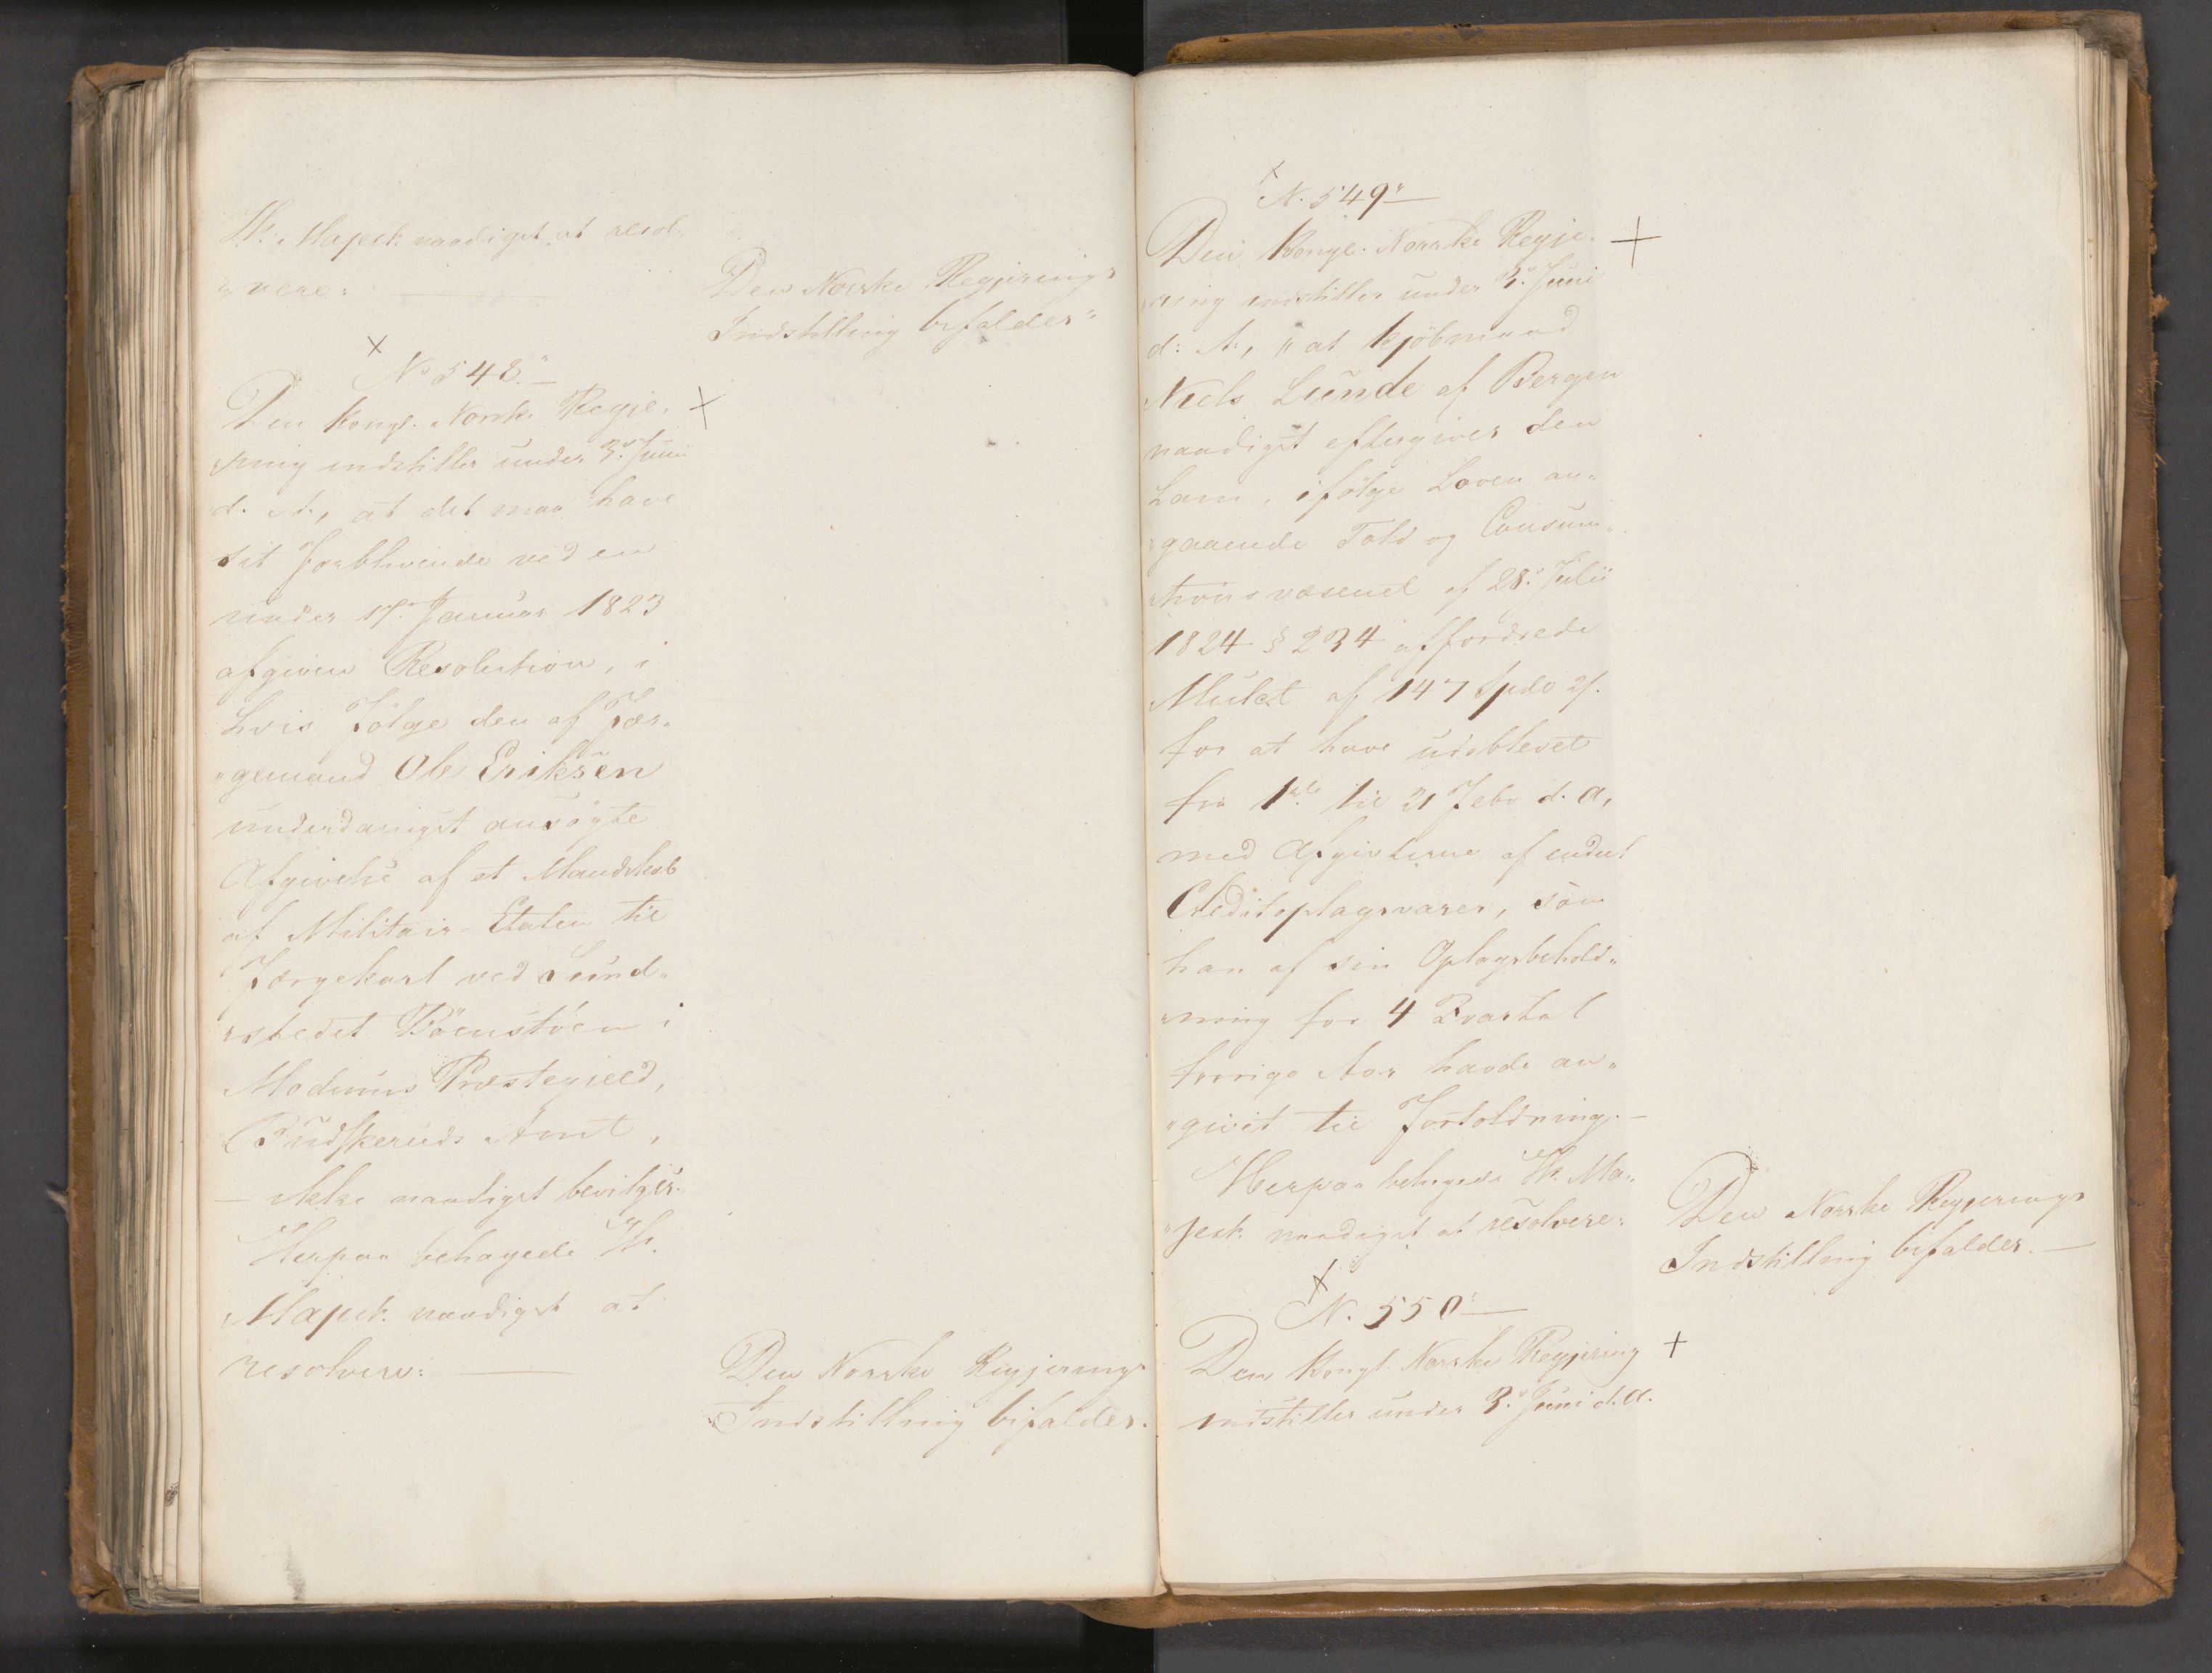 H: Majest: naadigst at resol-
"vere:
Den Norske Regjerings
Indstilling bifaldes"
× No 548."
Den Kongl. Norske Regje- ×
"ring indstiller under 3. Juni
d. A., at det maa have
sit Forblivende ved en
under 17. Januar 1823
afgiven Resolution, i
hvis Følge den af Fær-
"gemand Ole Eriksen
underdanigst ansøgte
Afgivelse af et Mandskab
af Militair-Etaten til
Færgekarl ved Sund-
"stedet i
Modums Præstegield,
Budskeruds Amt,
— ikke naadigst bevilges.
Herpaa behagede H.
Majest. naadigst at
resolvere:
Den Norske Regjerings
Indstilling bifaldes.
× N. 549"
Den Kongl. Norske Regje- +
"ring indstiller under 3. Juni
d: A:, "at Kjøbmand
Niels Lunde af Bergen
naadigst eftergives den
ham, ifølge Loven an-
"gaaende Told og Consum-
"tionsvæsenet af 28. Juli
1824 § 234 affordrede
Mulct af 147 Spdlr
for at have udeblevet
fra 1ste til 21 Febr d. A,
med Afgivterne af endeel
Creditoplagsvarer, som
han af sin Oplagsbehold-
"ning for 4 Qvartal
forrige Aar havde an-
"givet til Fortoldning. —
Herpaa behagede H. Ma-
"jest. naadigst at resolvere:
Den Norske Regjerings
Indstilling bifaldes. —
× N. 550"
Den Kongl. Norske Regjering +
indstiller under 3. Juni d. A.